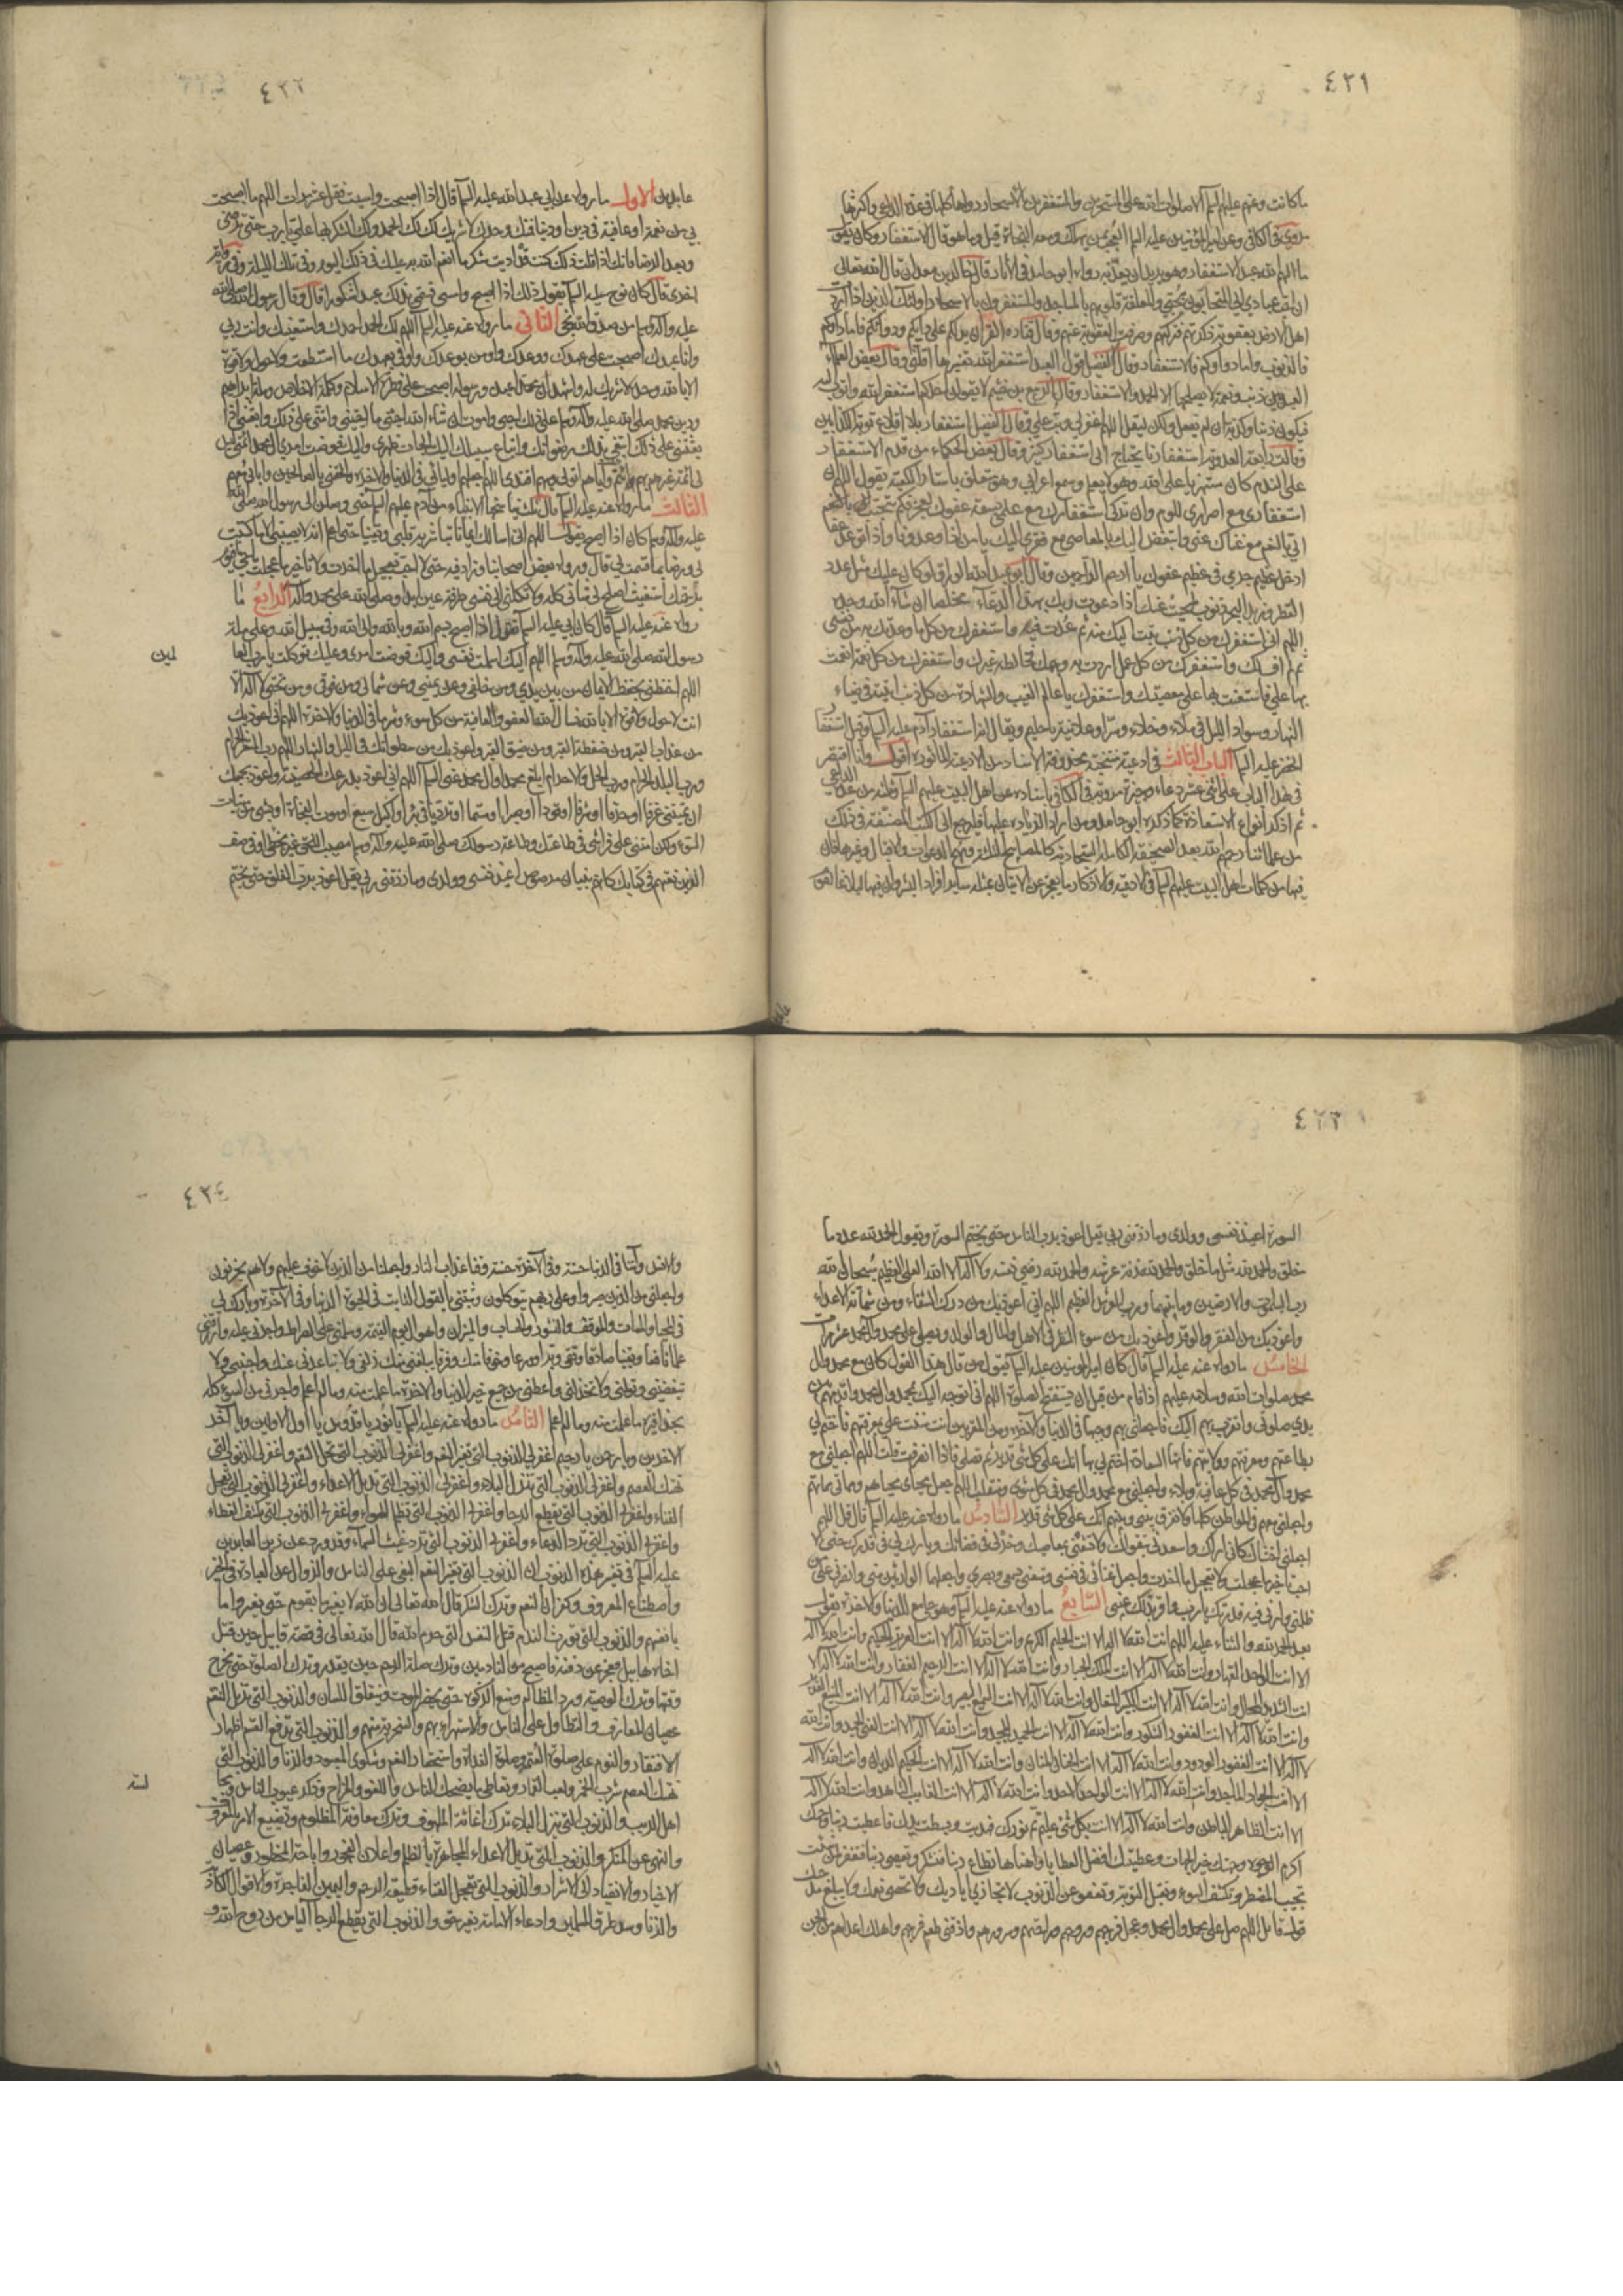 ٤٣١
ما كانت وعنهم عليهم السلم الا صلوات الله على المتسحرين والمستغفرين بالاسحار
روى في الكافي وعن امير المؤمنين عليه السلم العجب ممن يهلك ومعه النجاة قيل وما هو قال الاستغفار وكان يقول
ما الهم الله عبدا الاستغفار وهو يريد ان يعذبه رواه ابو حامد في الآثار قال خالد بن معدان قال الله تعالى
ان احب عبادي الي المتحابون بحبي والمعلقة قلوبهم بالمساجد والمستغفرون بالاسحار اولئك الذين اذا اردت
اهل الارض بعقوبة ذكرتهم فتركتهم وصرفت العقوبة عنهم وقال قتاده القرآن يدلكم على دائكم ودوائكم فاما داؤكم
فالذنوب واما دواؤكم فالاستغفار وقال الفضيل قول العبد استغفر الله تفسيرها اقلني وقال بعض العلماء
العبد بين ذنب ونعمة لا يصلحهما الا الحمد والاستغفار وقال الربيع بن خثيم لا يقولن احدكم استغفر الله واتوب اليه
فيكون ذنبا وكذبة ان لم يفعل ولكن ليقل اللهم اغفر لي وتب علي وقال الفضيل استغفار بلا اقلاع توبة الكذابين
وقالت رابعة العدوية استغفارنا يحتاج الى استغفار كثير وقال بعض الحكماء من قدم الاستغفار
على الندم كان مستهزيا على الله وهو لا يعلم وسمع اعرابي وهو متعلق باستار الكعبة يقول اللهم ان
استغفاري مع اصراري للوم وان تركي استغفارك مع علمي بسعة عفوك لعجز فكم تتحبب
الي بالنعم مع غناك عني واتبغض اليك بالمعاصي مع فقري اليك يا من اذا وعد وفا واذا توعد عفا
ادخل عظيم جرمي في عظيم عفوك يا ارحم الراحمين وقال ابو عبد الله الوراق لو كان عليك مثل عدد
القطر وزبد البحر ذنوب لمحيت عنك اذا دعوت ربك بهذا الدعاء مخلصا ان شاء الله وحده
اللهم اني استغفرك من كل ذنب تبت اليك منه ثم عدت فيه واستغفرك من كل ما وعدتك به من نفسي
ثم لم اف لك واستغفرك من كل عمل اردت به وجهك فخالطه غيرك واستغفرك من كل نعمة انعمت
بها علي فاستعنت بها على معصيتك واستغفرك يا عالم الغيب والشهادة من كل ذنب اتيته في ضياء
النهار وسواد الليل في ملاء وخلاء وسر وعلانية يا حليم ويقال انه استغفار آدم عليه السلم وقيل استغفار
الخضر عليه السلم الباب الثالث في ادعية منتخبة محذوفة الاسناد من الادعية المأثورة اقول وانا اقتصر
في هذا الباب على اثني عشر دعاء مروية في الكافي باسناده عن اهل البيت عليهم السلم
ثم اذكر انواع الاستعاذة كما ذكره ابو حامد ومن اراد الزيادة عليها فليرجع الى الكتب المصنفة في ذلك
من علمائنا رحمهم الله بعد الصحيفة الكاملة السجادية كالمصابيح الثلاثة ومنهج الدعوات والاقبال وغيرها فان
فيها من كلمات اهل البيت عليهم السلم في الادعية والاذكار ما يعجز عن الاتيان بمثله ساير افراد البشر
٤٣٢
الاول ما رواه عن ابي عبد الله عليه السلم قال اذا اصبحت وامسيت فقل عشر مرات اللهم ما اصبحت
بي من نعمة او عافية في دين او دنيا فمنك وحدك لا شريك لك لك الحمد ولك الشكر بها علي يا رب حتى ترضى
وبعد الرضا فانك اذا قلت ذلك كنت قد اديت شكر ما انعم الله به عليك في ذلك اليوم وفي تلك الليلة وفي رواية
اخرى قال كان نوح عليه السلم يقول ذلك اذا اصبح وامسى فسمي بذلك عبدا شكورا قال وقال رسول الله صلى الله
عليه وآله وسلم من صدق الله نجى الثاني ما رواه عنه عليه السلم اللهم لك الحمد احمدك واستعينك وانت ربي
وانا عبدك اصبحت على عهدك ووعدك واومن بوعدك واوفي بعهدك ما استطعت ولا حول ولا قوة
الا بالله وحده لا شريك له واشهد ان محمدا عبده ورسوله اصبحت على فطرة الاسلام وكلمة الاخلاص وملة ابراهيم
ودين محمد صلى الله عليه وآله وسلم على ذلك احيى واموت ان شاء الله احيني ما احييتني وامتني على ذلك وابعثني اذا
بعثتني على ذلك ابتغي بذلك رضوانك واتباع سبيلك اليك الجات ظهري واليك فوضت امري آل محمد ائمتي ليس
لي ائمة غيرهم بهم ائتم واياهم اتولى وبهم اقتدي اللهم اجعلهم اوليائي في الدنيا والاخرة والحقني بالصالحين وآبائي معهم
الثالث ما رواه عنه عليه السلم
عليه وآله وسلم كان اذا اصبح يقول اللهم اني اسالك ايمانا تباشر به قلبي ويقينا حتى اعلم انه لا يصيبني الا ما كتبت
لي ورضا بما قسمت لي قال ورواه بعض اصحابنا وزاد فيه حتى لا احب تعجيل ما اخرت ولا تاخير ما عجلت يا حي يا قيوم
برحمتك استغيث اصلح لي شاني كله ولا تكلني الى نفسي طرفة عين ابدا وصلى الله على محمد وآله الرابع ما
رواه عنه عليه السلم قال كان ابي عليه السلم يقول اذا اصبح بسم الله وبالله والى الله وفي سبيل الله وعلى ملة
رسول الله صلى الله عليه وآله وسلم اللهم اليك اسلمت نفسي واليك فوضت امري وعليك توكلت يا رب العالمين
اللهم احفظني بحفظ الايمان من بين يدي ومن خلفي وعن يميني وعن شمالي ومن فوقي ومن تحتي لا اله الا
انت لا حول ولا قوة الا بالله نسال الله العفو والعافية من كل سوء وشر في الدنيا والاخرة اللهم اني اعوذ بك
من عذاب القبر ومن ضغطة القبر ومن ضيق القبر واعوذ بك من سطواتك في الليل والنهار اللهم رب المشعر الحرام
ورب البلد الحرام ورب الحل والاحرام ابلغ محمدا وآل محمد عني السلم اللهم اني اعوذ بدرعك الحصينة واعوذ بجمعك
ان تميتني غرقا او حرقا او شرقا او قودا او صبرا او مسما او ترديا في بئر او اكيل سبع او موت الفجأة او بشيء من ميتات
السوء ولكن امتني على فراشي في طاعتك وطاعة رسولك صلى الله عليه وآله وسلم مصيب الحق غير مخطئ او في صف
الذين نعتهم في كتابك كانهم بنيان مرصوص اعيذ نفسي وولدي وما رزقني ربي بقل اعوذ برب الفلق حتى يختم
٤٣٣
السورة اعيذ نفسي وولدي وما رزقني ربي بقل اعوذ برب الناس حتى يختم السورة ويقول الحمد لله عدد ما
خلق والحمد لله مثل ما خلق والحمد لله زنة عرشه والحمد لله رضى نفسه ولا اله الا الله العلي العظيم سبحان الله
رب السموات والارضين وما بينهما ورب العرش العظيم اللهم اني اعوذ بك من درك الشقاء ومن شماتة الاعداء
واعوذ بك من الفقر والوقر واعوذ بك من سوء المنظر في الاهل والمال والولد ويصلي على محمد وآل محمد عشر مرات
الخامس ما رواه عنه عليه السلم قال كان امير المؤمنين عليه السلم يقول من قال هذا القول كان مع محمد وآل
محمد صلوات الله وسلامه عليهم اذا قام من قبل ان يستفتح الصلوة اللهم اني اتوجه اليك بمحمد وآل محمد واقدمهم بين
يدي صلوتي واتقرب بهم اليك فاجعلني بهم وجيها في الدنيا والاخرة ومن المقربين انت مننت علي بمعرفتهم فاختم لي
بطاعتهم ومعرفتهم وولايتهم فانها السعادة اختم لي بها انك على كل شئ قدير ثم تصلي فاذا انصرفت قلت اللهم اجعلني مع
محمد وآل محمد في كل عافية وبلاء واجعلني مع محمد وآل محمد في كل مثوى ومنقلب اللهم اجعل محياي محياهم ومماتي مماتهم
واجعلني معهم في المواطن كلها ولا تفرق بيني وبينهم انك على كل شئ قدير السادس ما رواه عنه عليه السلم قال قل اللهم
اجعلني اخشاك كاني اراك واسعدني بتقواك ولا تشقني بمعاصيك وخر لي في قضائك وبارك لي في قدرك حتى لا
احب تاخير ما عجلت ولا تعجيل ما اخرت واجعل غنائي في نفسي ومتعني بسمعي وبصري واجعلهما الوارثين مني وانصرني على من
ظلمني وارني فيه قدرتك يا رب واقر بذلك عيني السابع ما رواه عنه عليه السلم وهو جامع للدنيا والاخرة يقول
بعد الحمد لله والثناء عليه اللهم انت الله لا اله الا انت الحليم الكريم وانت الله لا اله الا انت العزيز الحكيم وانت الله لا اله
الا انت الواحد القهار وانت الله لا اله الا انت الملك الجبار وانت الله لا اله الا انت الرحيم الغفار وانت الله لا اله الا
انت الشديد المحال وانت الله لا اله الا انت الكبير المتعال وانت الله لا اله الا انت السميع البصير وانت الله لا اله الا انت المنيع القدير
وانت الله لا اله الا انت الغفور الشكور وانت الله لا اله الا انت الحميد المجيد وانت الله لا اله الا انت الغني الحميد وانت الله
لا اله الا انت الغفور الودود وانت الله لا اله الا انت الحنان المنان وانت الله لا اله الا انت الحكيم الديان وانت الله لا اله
الا انت الجواد الماجد وانت الله لا اله الا انت الواحد الاحد وانت الله لا اله الا انت الغائب الشاهد وانت الله لا اله
الا انت الظاهر الباطن وانت الله لا اله الا انت بكل شئ عليم تم نورك فهديت وبسطت يدك فاعطيت ربنا وجهك
اكرم الوجوه وجهتك خير الجهات وعطيتك افضل العطايا واهناها تطاع ربنا فتشكر وتعصى ربنا فتغفر لمن شئت
تجيب المضطر وتكشف السوء وتقبل التوبة وتعفو عن الذنوب لا تجازى اياديك ولا تحصى نعمك ولا يبلغ مدحتك
قول قائل اللهم صل على محمد وآل محمد وعجل فرجهم وروحهم وراحتهم وسرورهم واذقني طعم فرجهم واهلك اعداءهم من الجن
٤٣٤
والانس وآتنا في الدنيا حسنة وفي الآخرة حسنة وقنا عذاب النار واجعلنا من الذين لا خوف عليهم ولا هم يحزنون
واجعلني من الذين صبروا وعلى ربهم يتوكلون وثبتني بالقول الثابت في الحيوة الدنيا وفي الآخرة وبارك لي
في المحيا والممات والموقف والنشور والحساب والميزان واهوال يوم القيمة وسلمني على الصراط واجزني عليه وارزقني
علما نافعا ويقينا صادقا وتقى وبرا وورعا وخوفا منك وفرقا يبلغني منك زلفى ولا يباعدني عنك واحببني ولا
تبغضني وتولني ولا تخذلني واعطني من جميع خير الدنيا والاخرة ما علمت منه وما لم اعلم واجرني من السوء كله
بحذافيره ما علمت منه وما لم اعلم الثامن ما رواه عنه عليه السلم يا نور يا قدوس يا اول الاولين ويا آخر
الاخرين ويا رحمن يا رحيم اغفر لي الذنوب التي تغير النعم واغفر لي الذنوب التي تحل النقم واغفر لي الذنوب التي
تهتك العصم واغفر لي الذنوب التي تنزل البلاء واغفر لي الذنوب التي تديل الاعداء واغفر لي الذنوب التي تعجل
الفناء واغفر لي الذنوب التي تقطع الرجا واغفر لي الذنوب التي تظلم الهواء واغفر لي الذنوب التي تكشف الغطاء
واغفر لي الذنوب التي ترد الدعاء واغفر لي الذنوب التي ترد غيث السماء وقد ورد عن زين العابدين
عليه السلم في تفسير هذه الذنوب ان الذنوب التي تغير النعم البغي على الناس والزوال عن العبادة في الخير
واصطناع المعروف وكفران النعم وترك الشكر قال الله تعالى ان الله لا يغير ما بقوم حتى يغيروا ما
بانفسهم والذنوب التي تورث الندم قتل النفس التي حرم الله قال الله تعالى في قصة قابيل حين قتل
اخاه هابيل فعجز عن دفنه فاصبح من النادمين وترك صلة الرحم حين يقدر وترك الصلوة حتى يخرج
وقتها وترك الوصية ورد المظالم ومنع الزكوة حتى يحضر الموت وينغلق اللسان والذنوب التي تزيل النعم
عصيان المعارف والتطاول على الناس والاستهزاء بهم والسخرية منهم والذنوب التي تدفع القسم اظهار
الافتقار والنوم على صلوة العتمة وصلوة الغداة واستحقار النعم وشكوى المعبود والزنا والذنوب التي
تهتك العصم شرب الخمر ولعب القمار وتعاطي ما يضحك الناس واللغو والمزاح وذكر عيوب الناس
اهل الريب والذنوب التي تنزل البلاء ترك اغاثة الملهوف وترك معاونة المظلوم وتضييع الامر بالمعروف
والنهي عن المنكر والذنوب التي تديل الاعداء المجاهرة بالظلم واعلان الفجور واباحة المحظور وعصيان
الاخيار والانقياد الى الاشرار والذنوب التي تعجل الفناء قطيعة الرحم واليمين الفاجرة والاقوال الكاذبة
والزنا وسد طرق المسلمين وادعاء الامامة بغير حق والذنوب التي تقطع الرجا الياس من روح الله